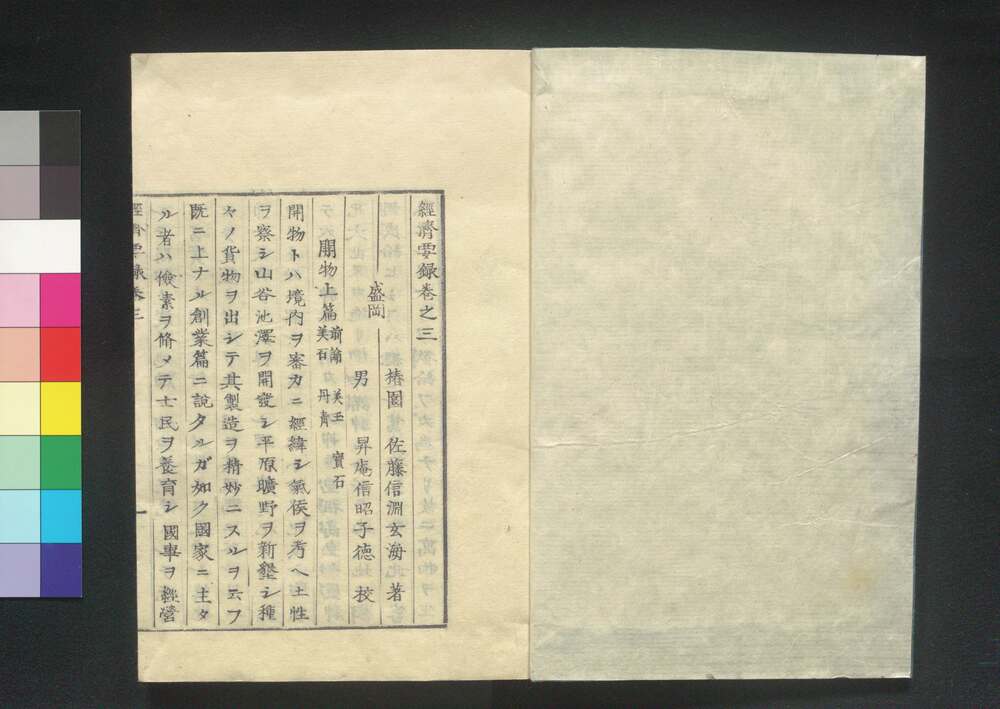 經濟要録卷之三
椿園 佐藤信淵玄海 著
盛岡
男 昇庵信昭子德 校
開物上篇 前篇 美玉 寳石 美石 丹青
開物トハ境内ヲ審カニ經緯シ氣候ヲ考ヘ土性
ヲ察シ山谷池澤ヲ開發シ平原曠野ヲ新墾シ種
々ノ貨物ヲ出シテ其製造ヲ精妙ニスルヲ云フ
既ニ上ナル創業篇ニ說タルガ如ク國家ニ主タ
ル者ハ儉素ヲ脩メテ士民ヲ養育シ國事ヲ經營
經濟要録卷三
一